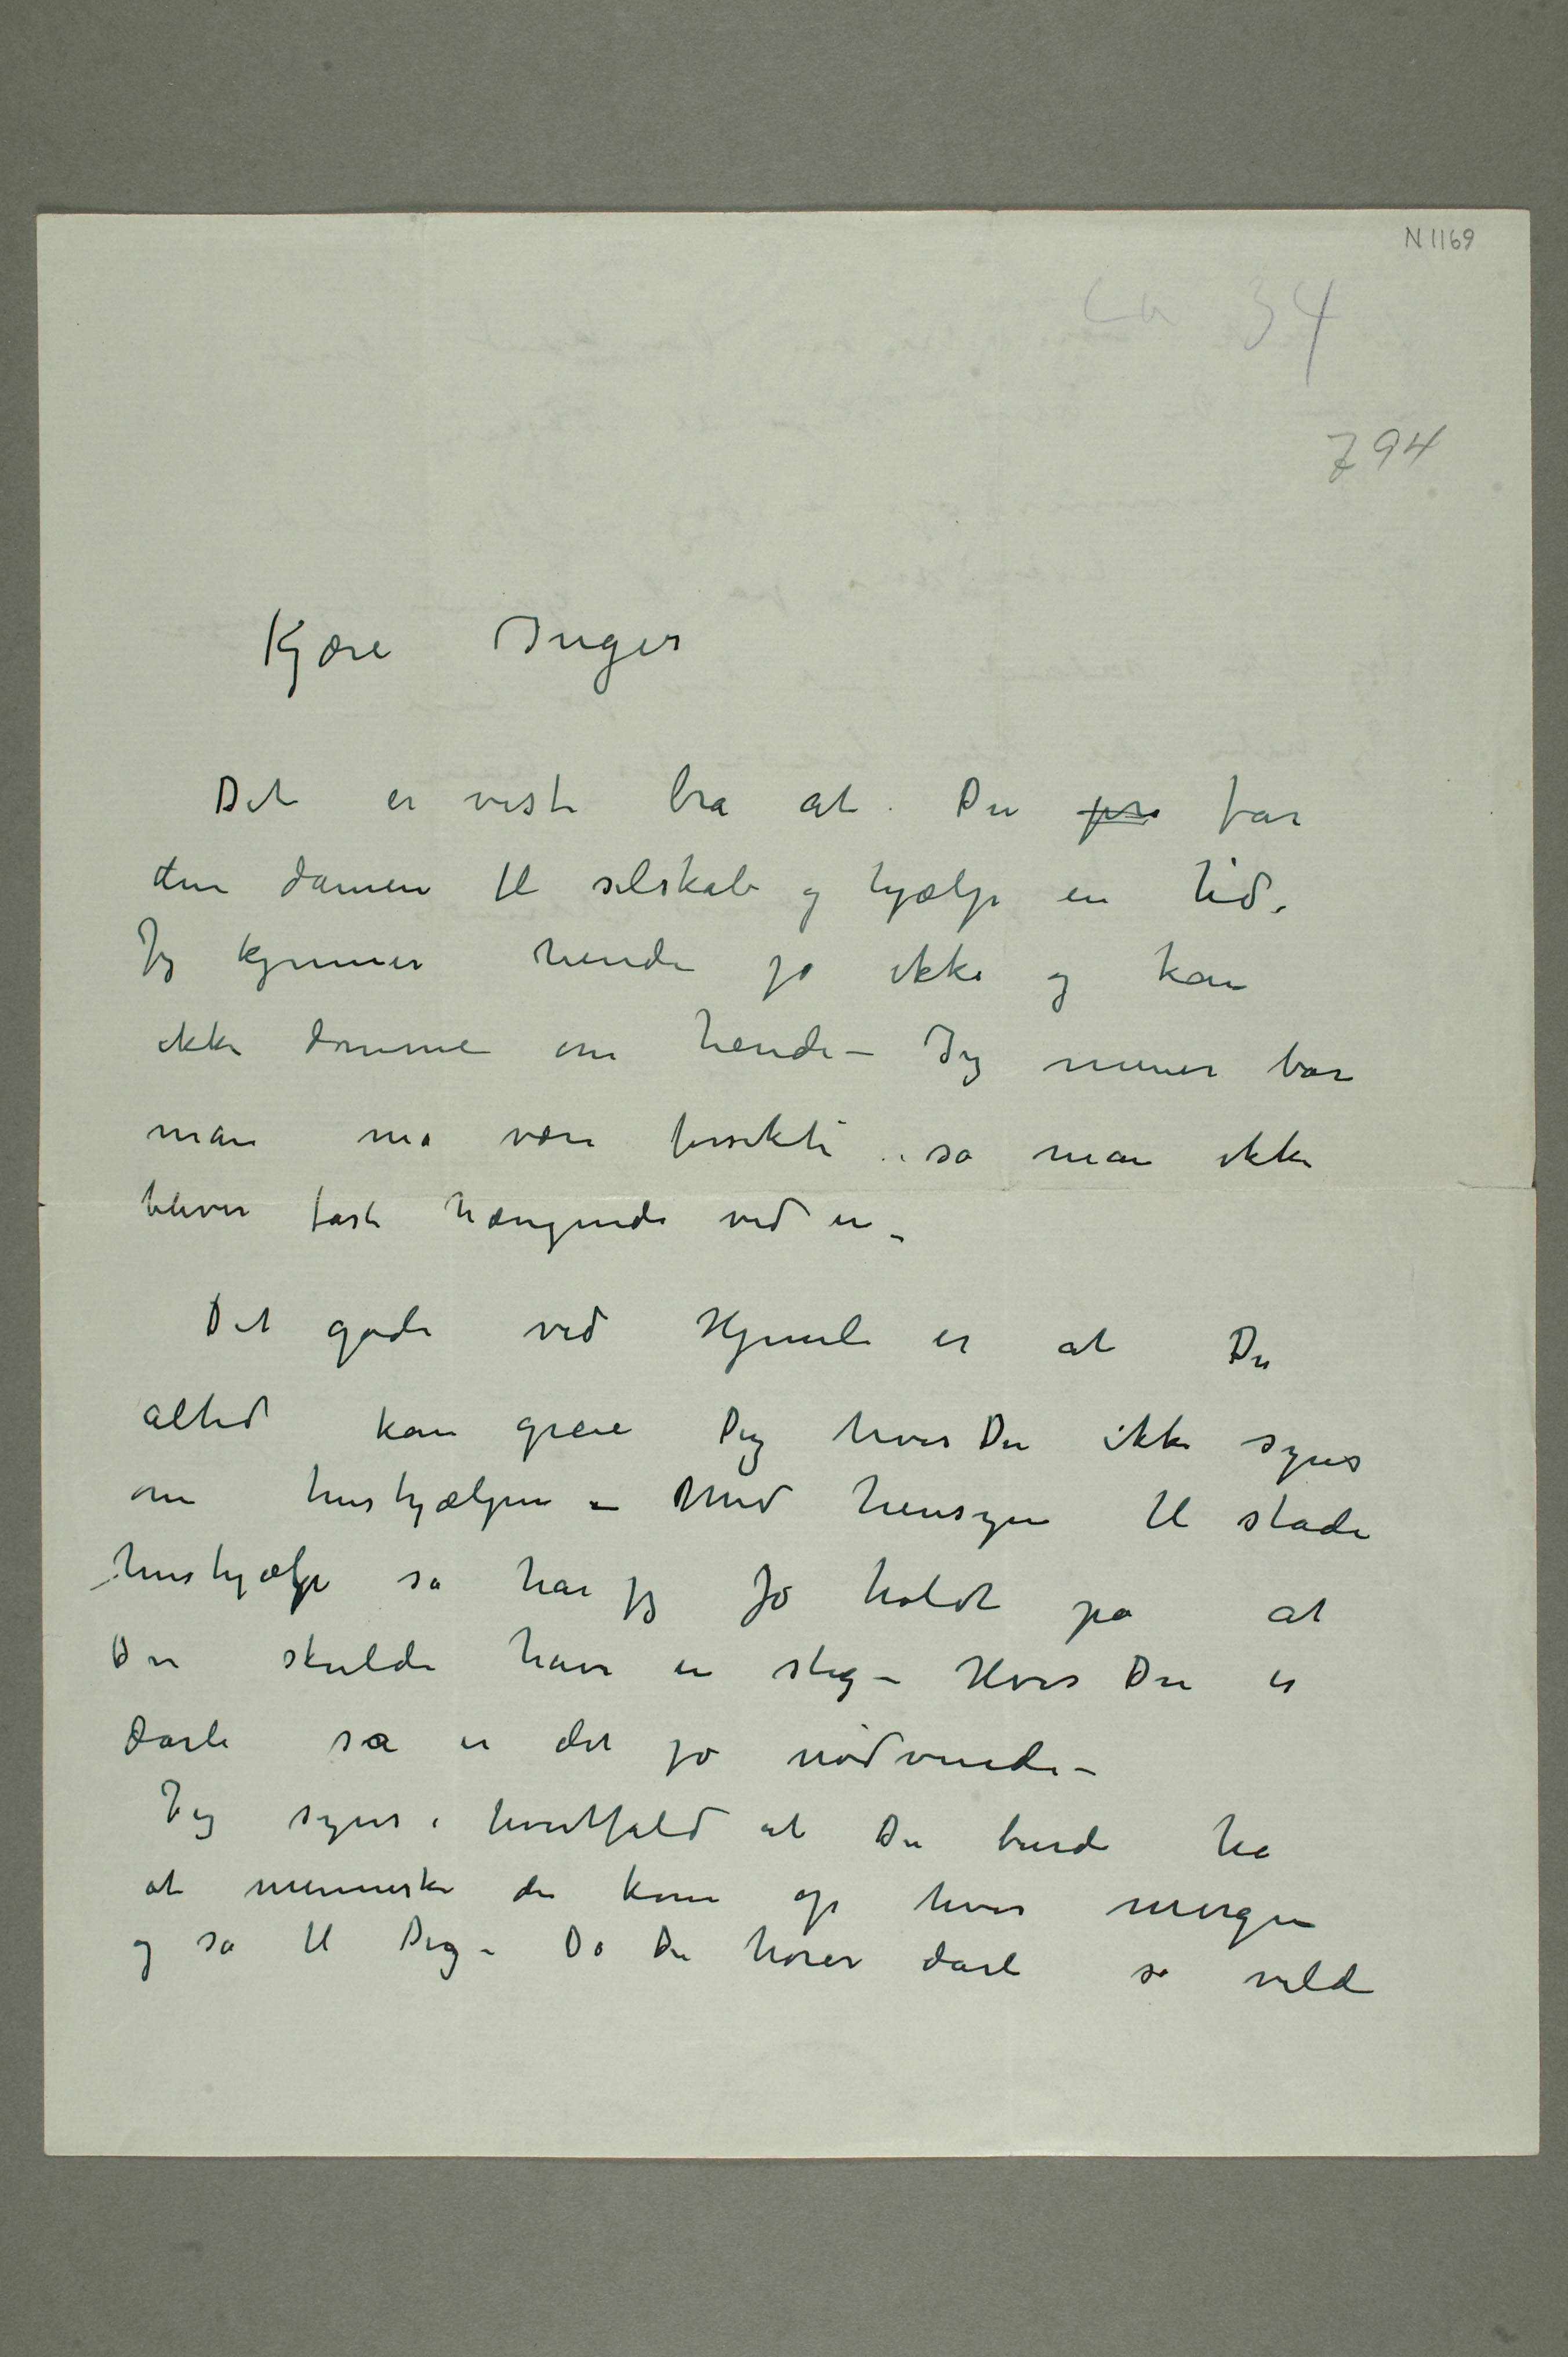 N 1169
ca 34
794
Kjære Inger
Det er visst bra at Du får
den damen til selskab og hjælp en tid.
Jeg kjenner hende jo ikke og kan
ikke dømme om hende – Jeg mener bare
man må være forsikti så man ikke
bliver fast hængende ved en –
Det gode ved Hjemle er at Du
altid kan greie Dig hvis Du ikke synes
om hushjælpen – Med hensyn til stadi
hushjælp så har jeg jo holdt på at
Du skulde have en slig – Hvis Du er
dårli så er det jo nødvendi –
Jeg synes i hvertfald at Du burde ha
et menneske der kom op hver morgen
og så til Dig – Da Du hører dårli så vilde